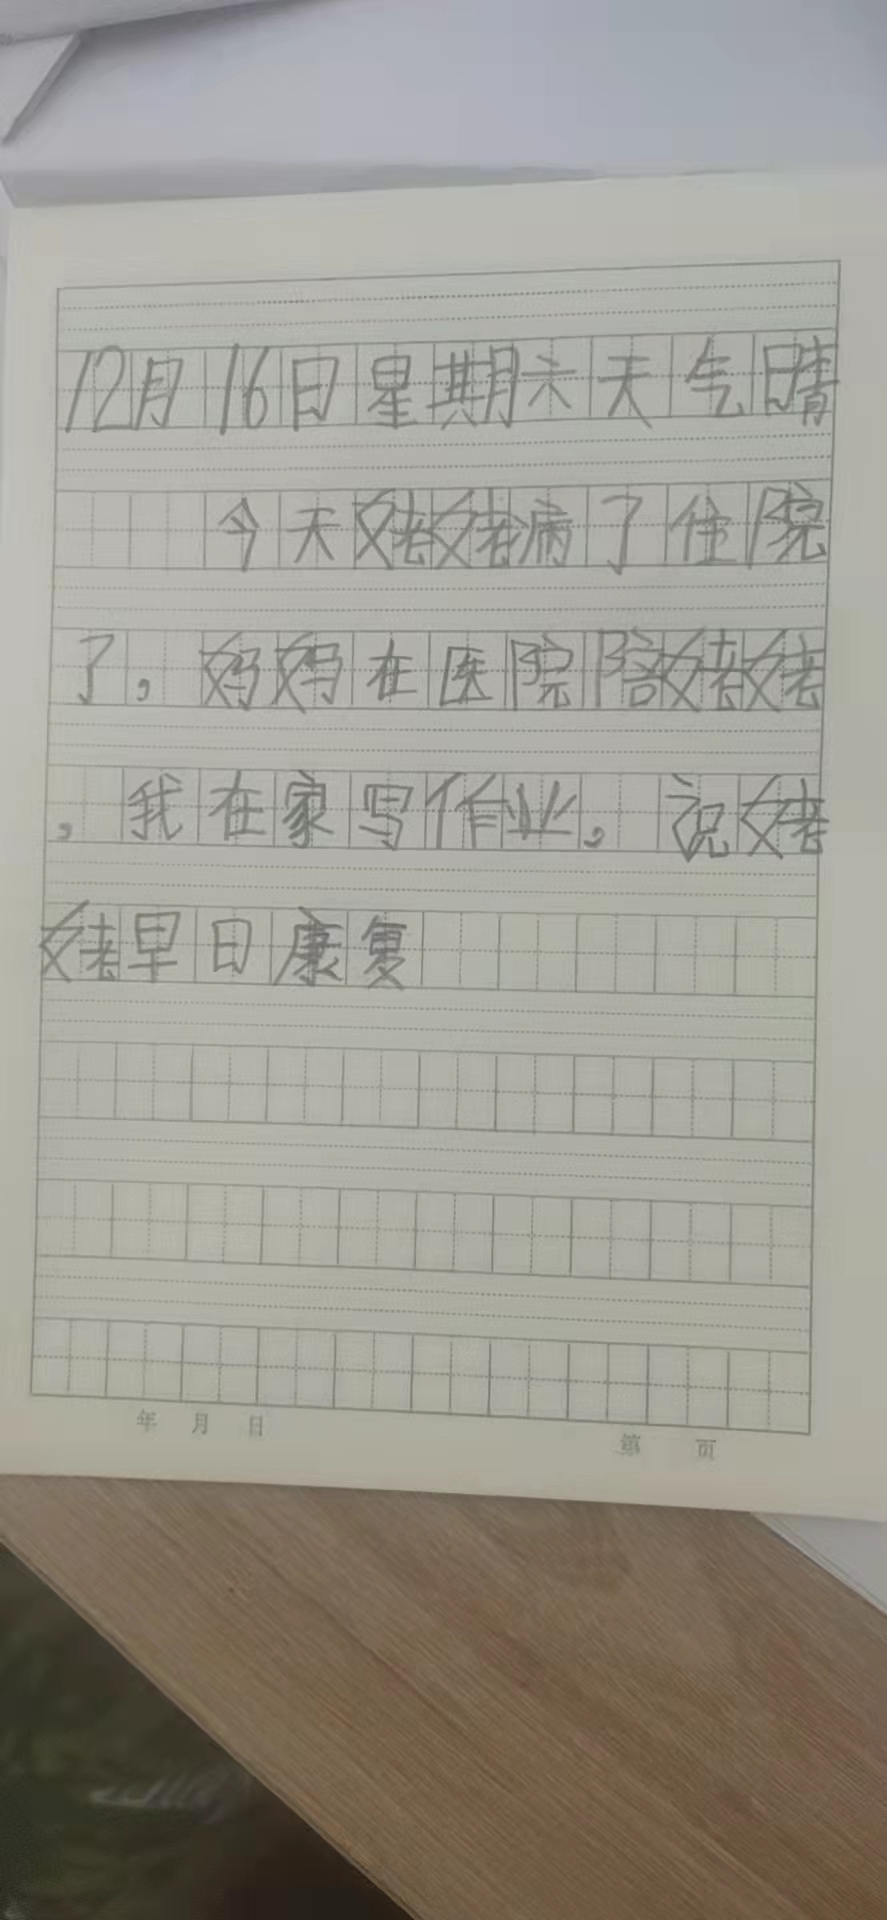 12月16日星期六天气晴
今天姥姥病了住院
了,妈妈在医院陪姥姥
,我在家写作业。祝姥
姥早日康复
年 月 日 第 页